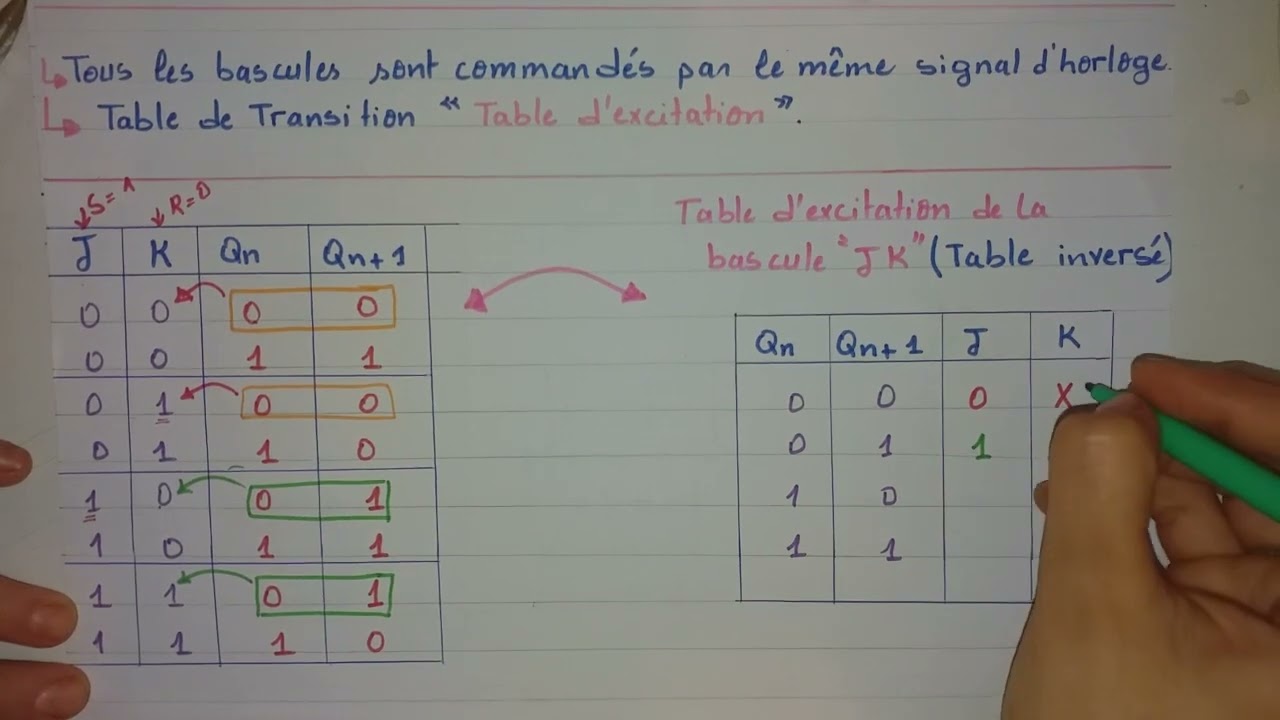 ↳ Tous les bascules sont commandés par le même signal d'horloge.
↳ Table de Transition " Table d'excitation ".
S=1 R=0
J K Qn Qn+1
0 0 0 0
0 0 1 1
0 1 0 0
0 1 1 0
1 0 0 1
1 0 1 1
1 1 0 1
1 1 1 0
Table d'excitation de la
bascule "JK" (Table inversé)
Qn Qn+1 J K
0 0 0 X
0 1 1
1 0
1 1